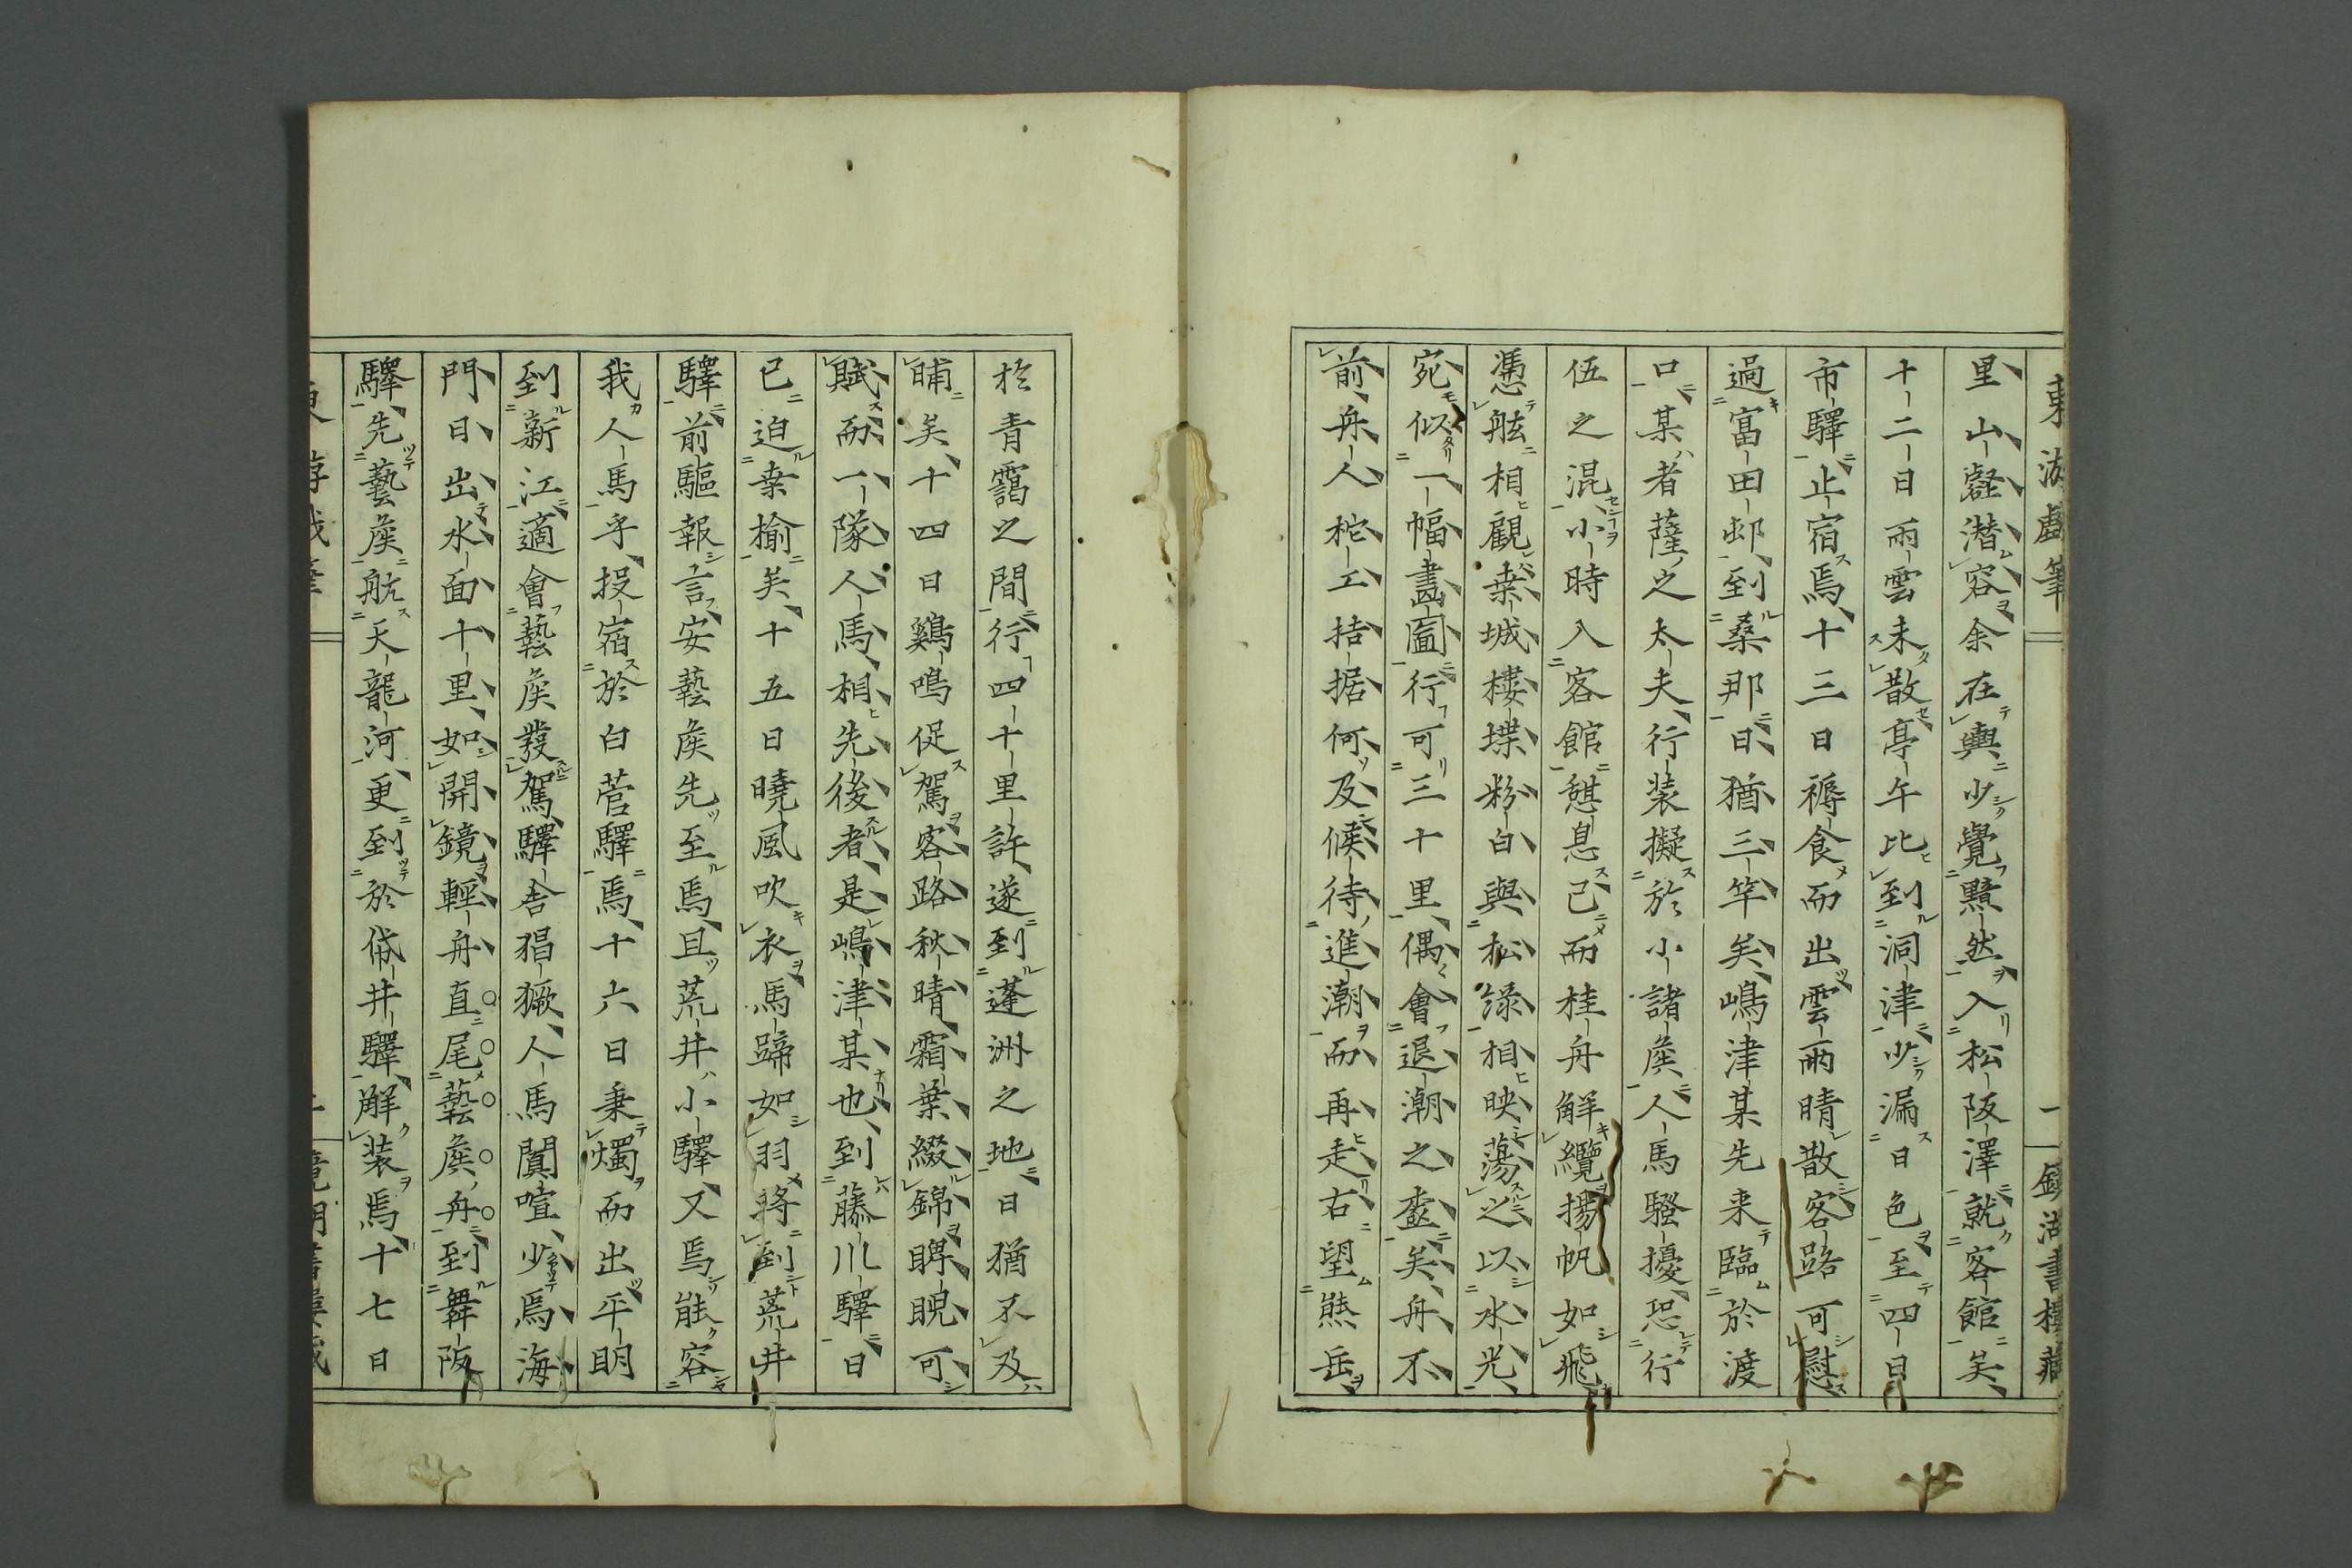 東游戲筆 一 鏡湖書樓藏
里山壑潜容余在輿少覺黯然入松阪澤就客館矣
十二日雨雲未散亭午比到洞津少漏日色至四日
市驛止宿焉十三日褥食而出雲雨晴散客路可慰
過富田邨到桑那日猶三竿矣嶋津某先来臨於渡
口某者薩之太夫行装擬於小諸矦人馬騷擾恐行
伍之混小時入客館憩息已而桂舟解纜揚帆如飛
憑舷相觀桒城樓堞粉白與松綠相映蕩之以水光
宛似一幅畫圖行可三十里偶會退潮之盡矣舟不
前舟人柁工拮据何及候待進潮而再走右望熊岳
於青靄之間行四十里許遂到蓬洲之地日猶不及
晡矣十四日鷄鳴促駕客路秋晴霜葉綴錦睥睨可
賦而一隊人馬相先後者是嶋津某也到藤川驛日
已迫桒榆矣十五日曉風吹衣馬蹄如羽将到荒井
驛前驅報言安藝矦先至焉且荒井小驛又焉能容
我人馬乎投宿於白菅驛焉十六日秉燭而出平明
到新江適會藝矦發駕驛舎猖獗人馬闐喧少焉海
門日出水面十里如開鏡輕舟直尾藝矦舟到舞阪
驛先藝矦航天龍河更到於帒井驛觧装焉十七日